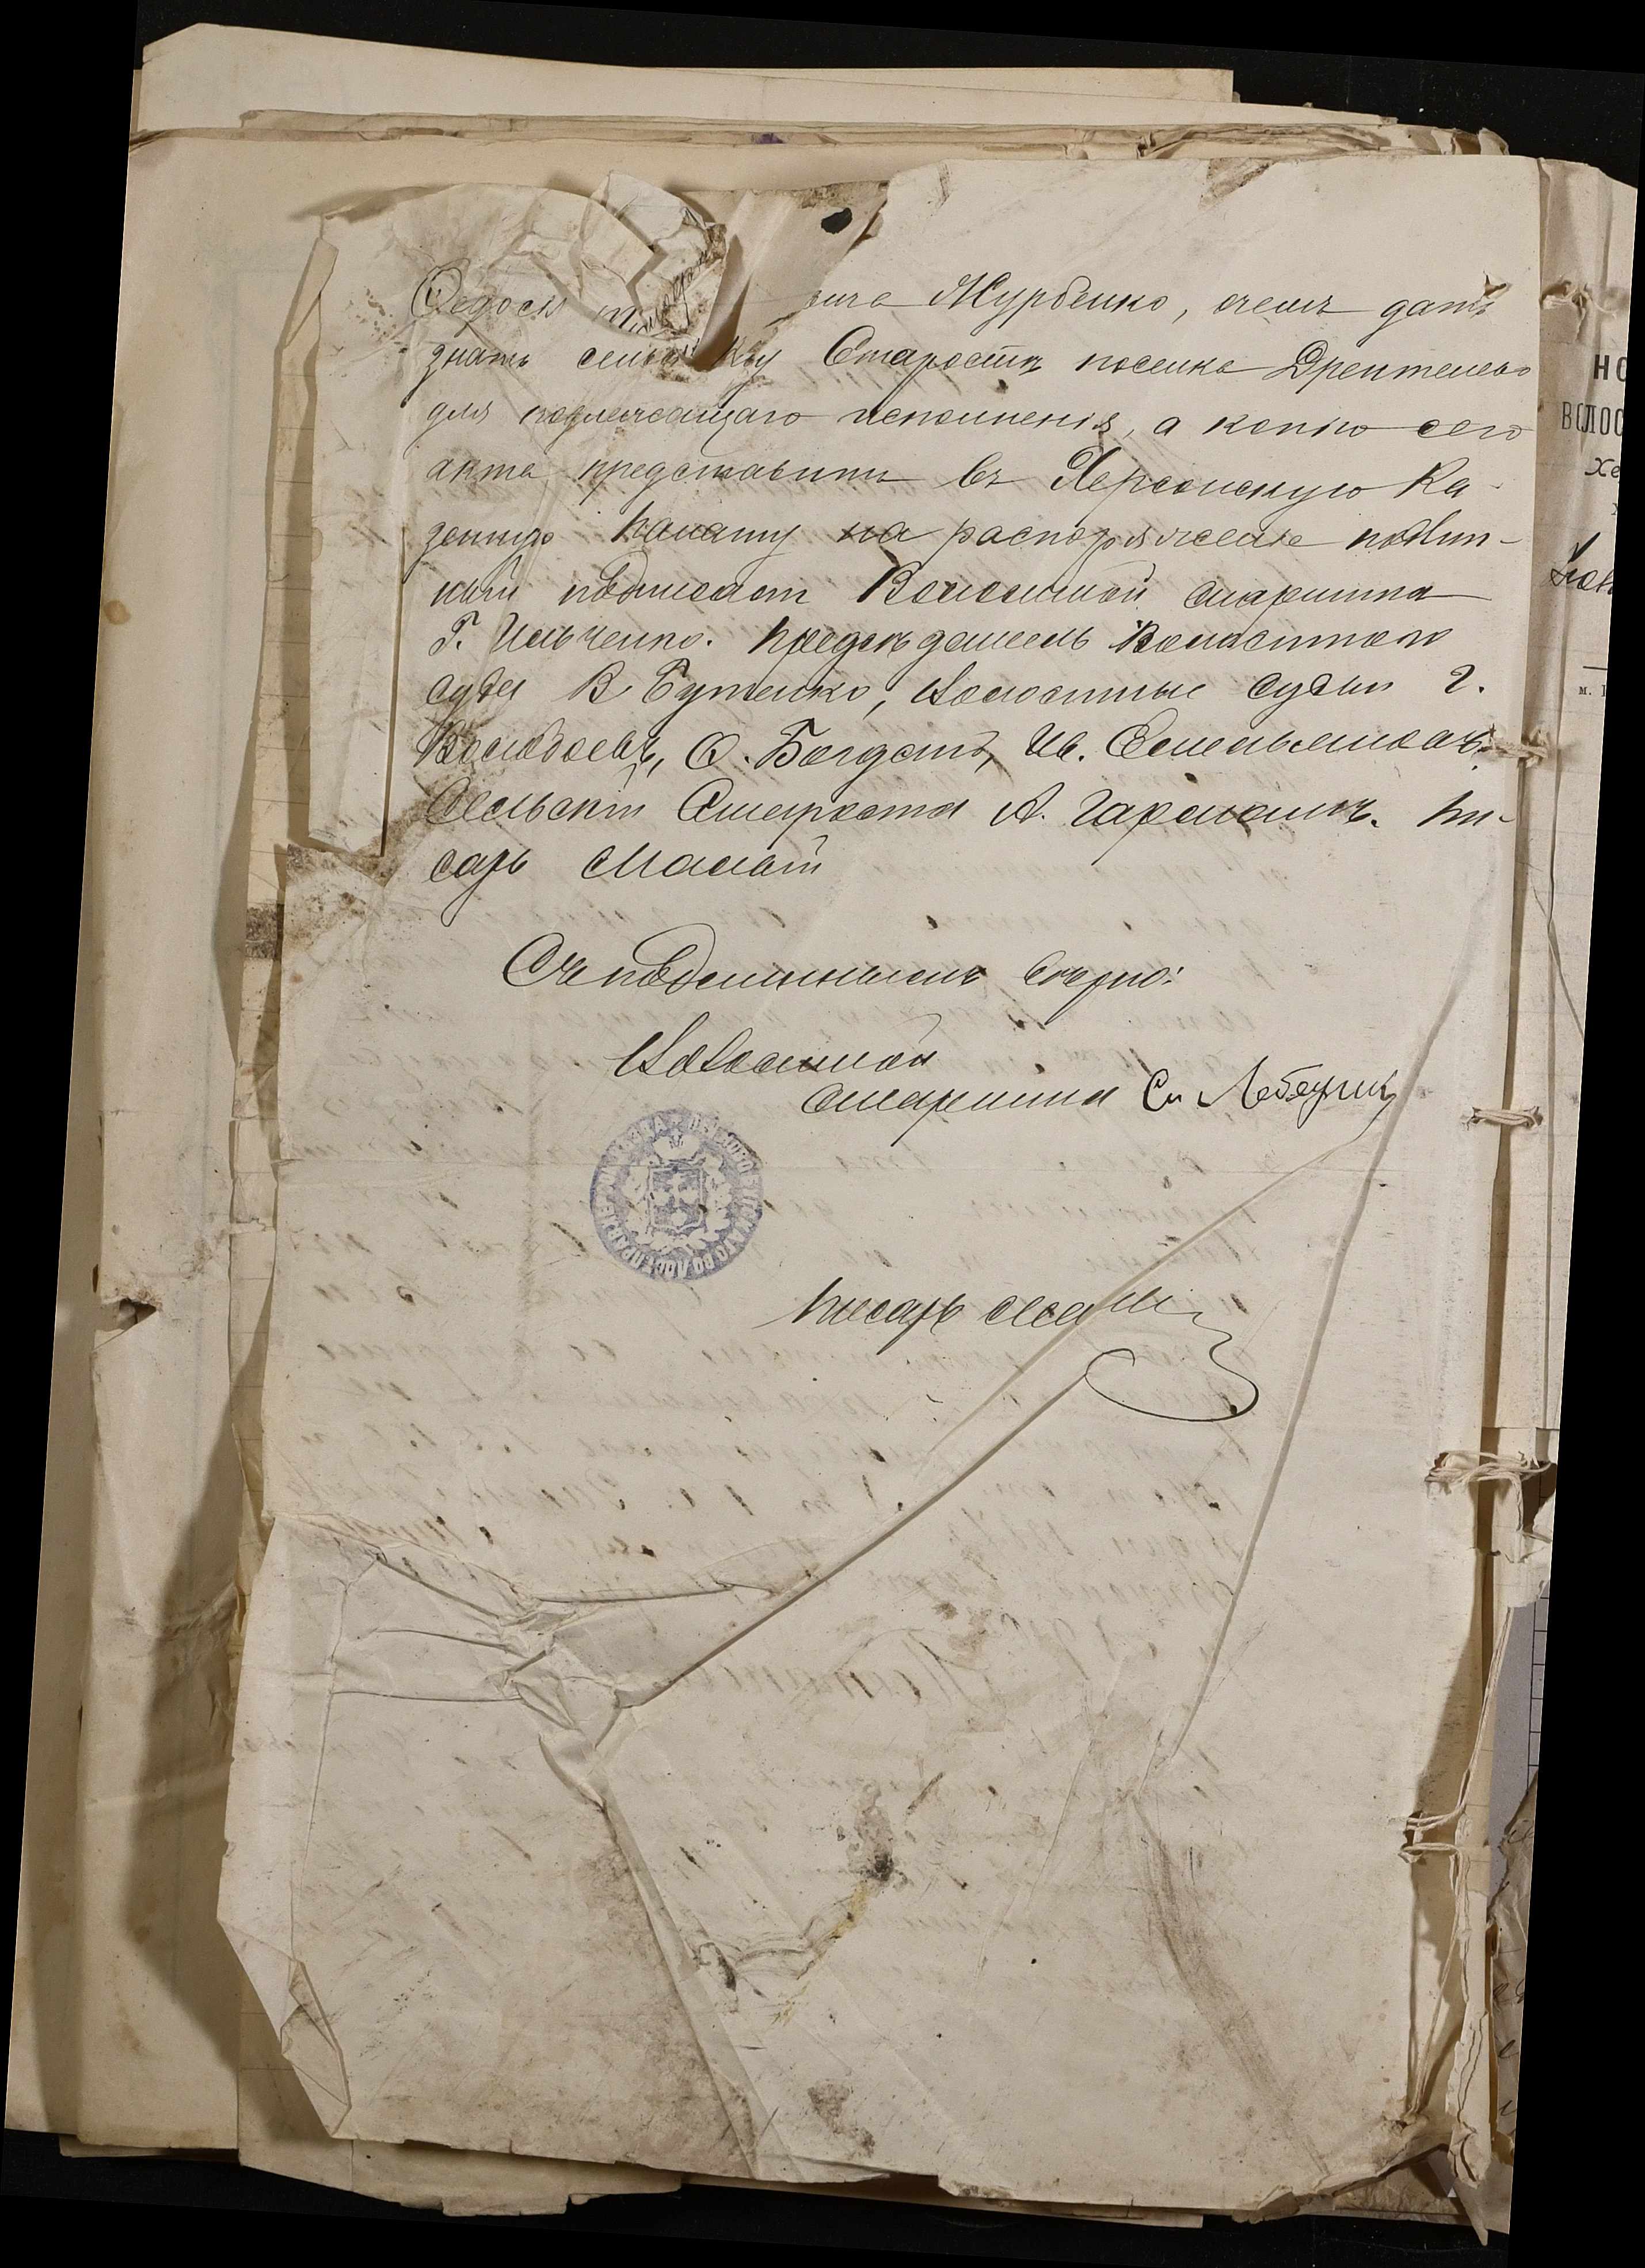 Федосія ича Журбенко, о чемъ дать
знать сельскому Старостѣ поселка Дрентелево
для надлежащаго исполненія, а копію сего
акта представить въ Херсонскую Ка-
зенную Палату на распоряженіе подлин-
ный подписали Волостной старшина
Г. Ильченко. Предсѣдатель Волостного
суда В. Бутенко, Волостные судьи Г.
Воловдоевъ, Ѳ. Богданъ, Ив. Емельяновъ.
Сельскій Староста А. Гармашъ. Пи-
сарь Малай
Съ подлиннымъ вѣрно:
Волостной
старшина
Писарь
НО
ВОЛОС
Хе
м. П